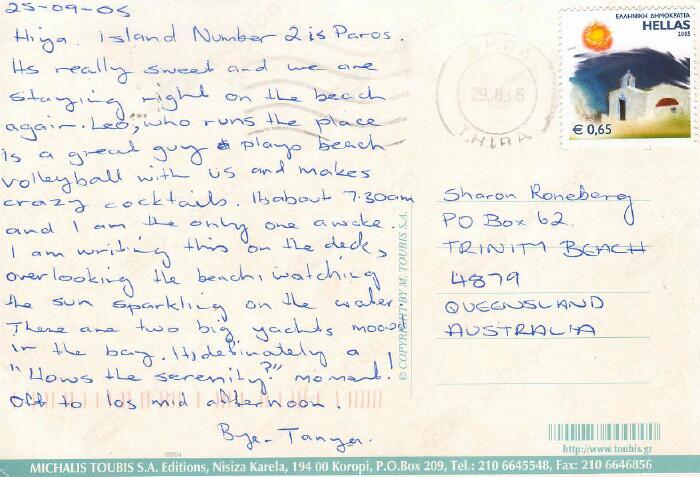 25-09-05
Hiya. island Number 2 is Paros.
Its really sweet and we are
staying right on the beach
again. Leo, who runs the place
is a great guy & plays beach
volleyball with us and makes
crazy cocktails. Its about 7.30am
and I am the only one awake.
I am writing this on the deck,
overlooking the beach, watching
the sun sparkling on the water.
There are two big yachts moored
in the bay. Its definately a
"Hows the serenity?" moment!
Off to Ios mid afternoon.
Bye- Tanya.
ΕΛΛΗΝΙΚΗ ΔΗΜΟΚΡΑΤΙΑ
HELLAS
2005
€ 0,65
THIRA
Sharon Roneberg
PO Box 62
TRINITY BEACH
4879
QUEENSLAND
AUSTRALIA
© COPYRIGHT BY M. TOUBIS S.A.
http://www.toubis.gr
MICHALIS TOUBIS S.A. Editions, Nisiza Karela, 194 00 Koropi, P.O.Box 209, Tel.: 210 6645548, Fax: 210 6646856